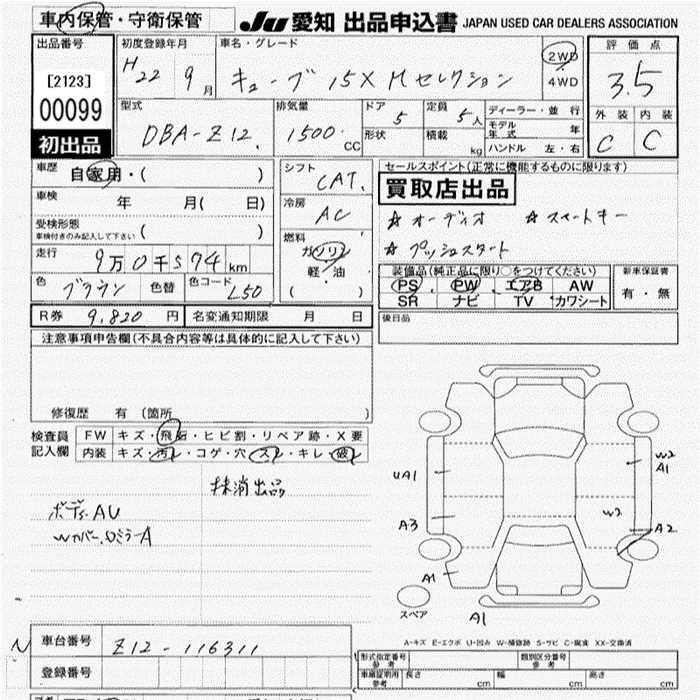 車内保管・守衛保管 Ju 愛知 出品申込書 JAPAN USED CAR DEALERS ASSOCIATION
出品番号 初度登録年月 車名・グレード 評価点
[2123] H22 9月 キューブ 15X Mセレクション 2WD 4WD 3.5
00099
型式 排気量 ドア 定員 ディーラー・並行 外装 内装
DBA-Z12. 1500 CC 5 5人 モデル年式 年 C C
初出品 形状 積載 kg ハンドル 左・右
車歴 自家用・( ) シフト CAT. セールスポイント(正常に機能するものに限ります)
買取店出品
車検 年 月( 日) 冷房 AC ☆オーディオ ☆スマートキー
受検形態 車検付きのみ記入して下さい ( ) 燃料 ☆プッシュスタート
走行 9万0千574km ガソリン 軽・油 ( )
装備品(純正品に限り○をつけてください) 新車保証書
色 ブラウン 色替 色コード L50 PS PW エアB AW 有・無
SR ナビ TV カワシート
R券 9,820円 名変通知期限 月 日 後日品
注意事項申告欄(不具合内容等は具体的に記入して下さい)
修復歴 有 (箇所 )
検査員記入欄 FW キズ・飛石・ヒビ割・リペア跡・X要
内装 キズ・汚レ・コゲ・穴・スレ・キレ・破レ
抹消出品
ボディAU
Wカバー、ロミラーA
UA1 W2 A1
W2
A3 A2
A1
スペア A1
A-キズ E-エクボ U-凹み W-補修跡 S-サビ C-腐食 XX-交換済
N 車台番号 Z12-116311
登録番号
形式指定番号 参考 類別区分番号 参考
車庫証明用 参考 長さ cm 幅 cm 高さ cm